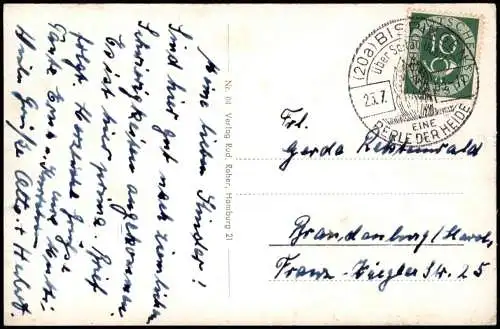 Meine lieben Kinder!
Sind hier gut nach ziemlichen
Schwierigkeiten angekommen.
Es ist hier prima. Brief
folgt. Herzliche Grüße
Tante Erna u.
und Mutti
Viele Grüße Otto + Hubert
Nr. 84 Verlag Rud. Reher, Hamburg 21
(20a) BISPINGEN
über Soltau
23.7.
EINE
PERLE DER HEIDE
DEUTSCHE
10
Frl.
Gerda
Brandenburg/Havel,
Franz-Ziegler Str. 25